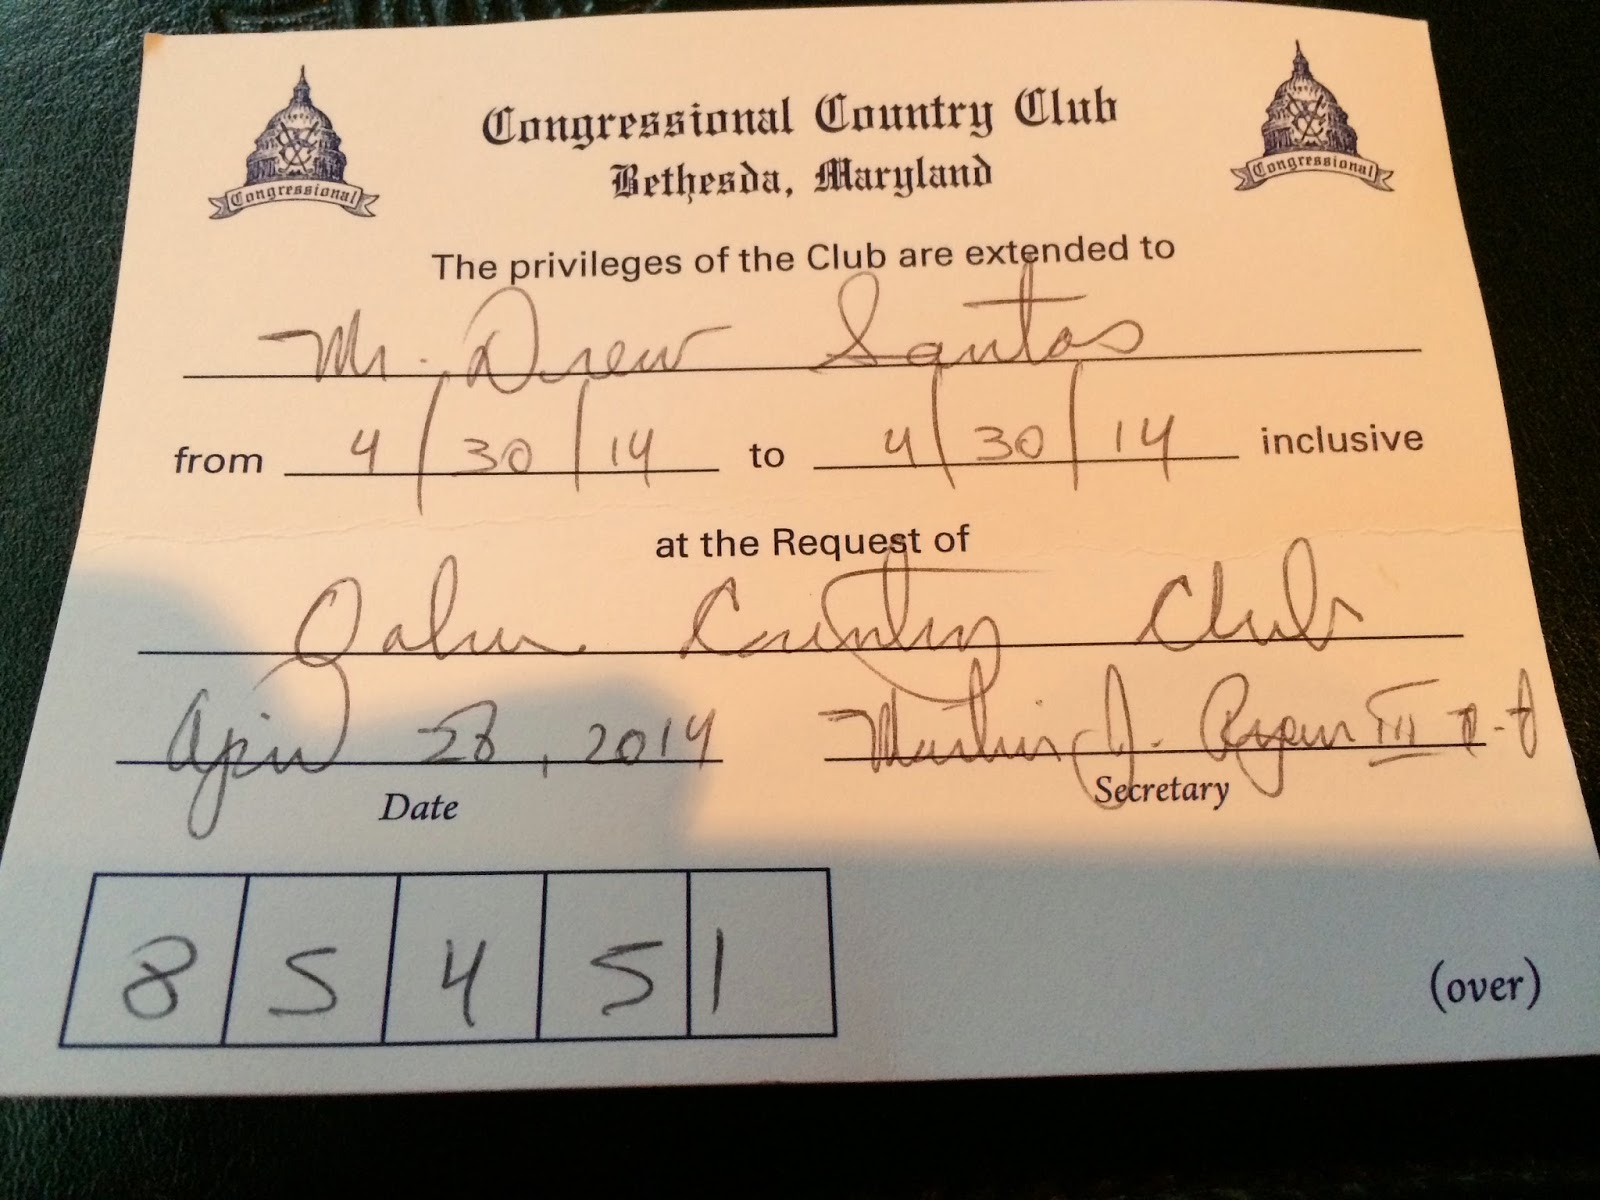 Congressional Country Club
Bethesda, Maryland
Congressional
Congressional
The privileges of the Club are extended to
Mr. Drew Santos
from 4/30/14 to 4/30/14 inclusive
at the Request of
Oahu Country Club
April 28, 2014 Martin J. III
Date Secretary
8 5 4 5 1
(over)